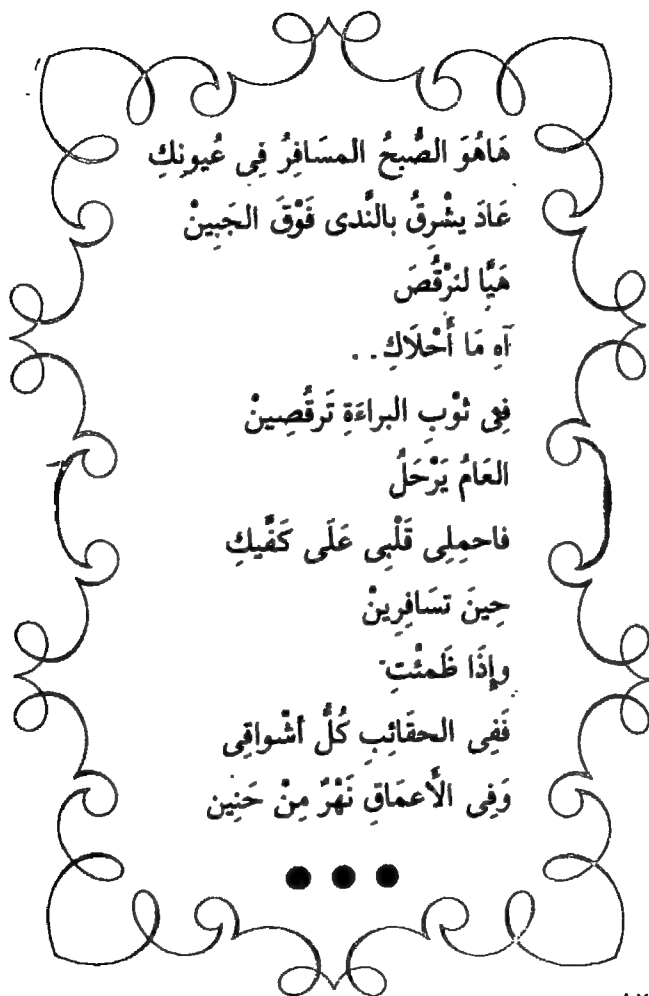 هَاهُوَ الصُّبحُ المسَافِرُ فِى عُيونِكِ
عَادَ يشْرِقُ بالنَّدى فَوْقَ الجَبِينْ
هَيَّا لنرْقُصَ
آهِ مَا أَحْلَاكِ..
فِى ثوْبِ البراءَةِ تَرقُصِينْ
العَامُ يَرْحَلُ
فاحمِلِى قَلْبِى عَلَى كَفَّيكِ
حِينَ تسَافِرِينْ
وإِذَا ظَمئْتِ
فَفِى الحقَائِبِ كُلُّ أشْواقِى
وَفِى الأَعمَاقِ نَهْرٌ مِنْ حَنِين